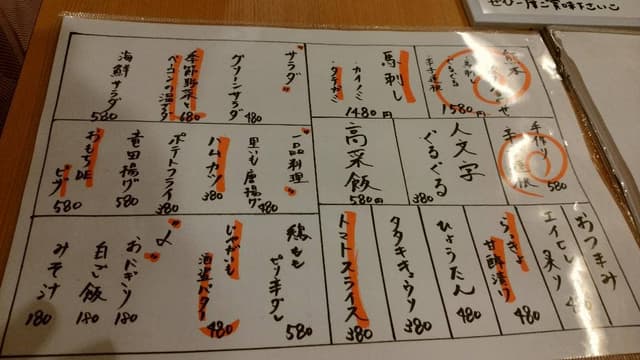 ぜひ一度ご賞味下さいこ
熊本
馬刺し
辛子蓮根
1580円
馬刺し
カイノミ
クラガミ
1480円
サラダ
グリーンサラダ
480
季節野菜と
ベーコンの温サラダ
680
海鮮サラダ
580
手作り
辛子蓮根
580
人文字
ぐるぐる
380
高菜飯
580円
一品料理
里いも唐揚げ
480
ハムカツ
380
ポテトフライ
380
竜田揚げ
580
おもちDE
ピザ
580
おつまみ
エイヒレ炙り
480
らっきょ
甘酢漬け
480
ひょうたん
480
タタキキュウリ
380
トマトスライス
380
鶏もも
ピリ辛ダレ
580
じゃがいも
酒盗バター
480
〆
おにぎり
180
白ご飯
180
みそ汁
180